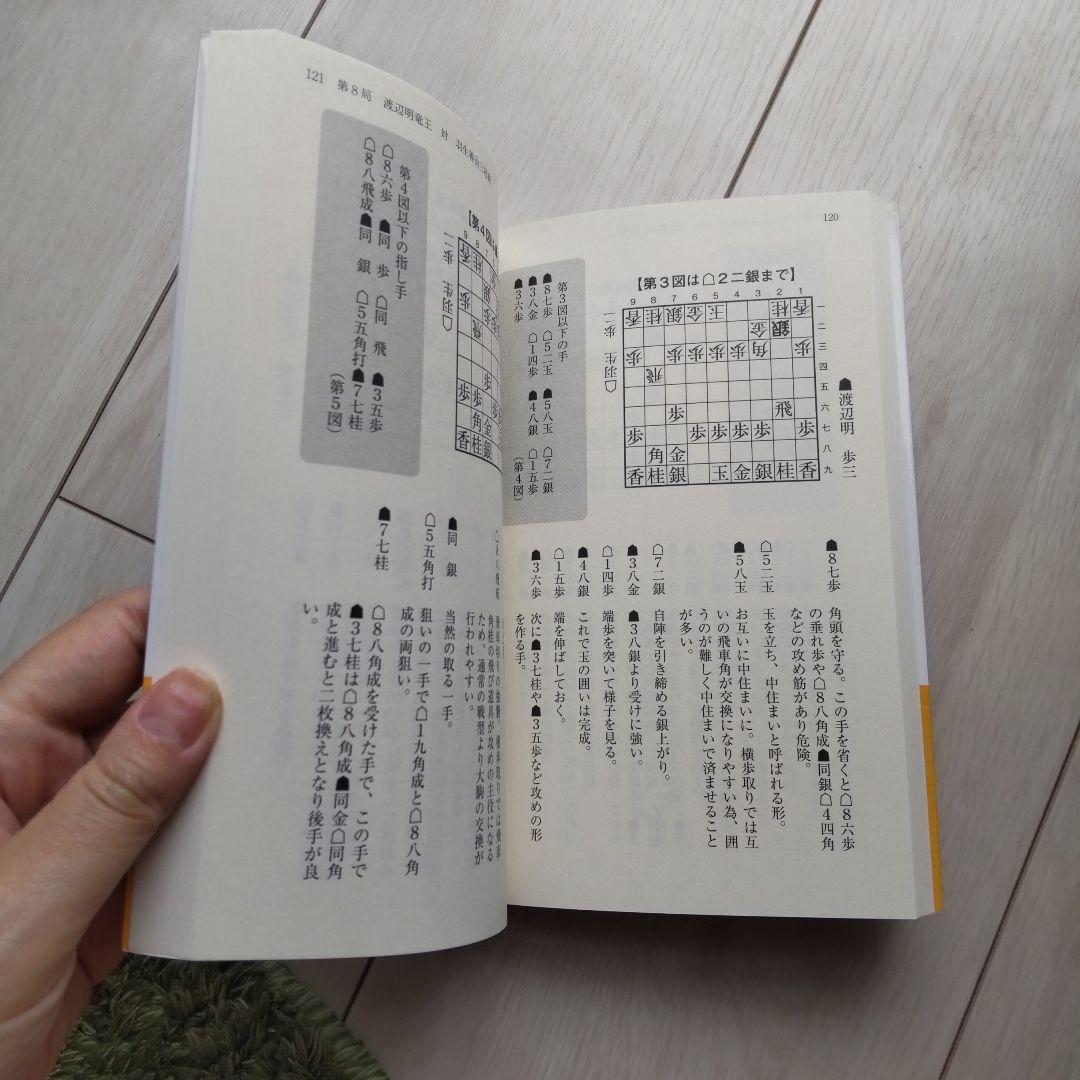 120
【第３図は☖２二銀まで】
９ ８ ７ ６ ５ ４ ３ ２ １
香 桂 銀 金 玉 桂 香 一
金 銀 二
歩 歩 歩 歩 歩 角 歩 三
飛 四
五
歩 飛 六
歩 歩 歩 歩 歩 歩 七
角 金 八
香 桂 銀 玉 金 銀 桂 香 九
☗渡辺明 歩三
☖羽生 歩二
第３図以下の手
☗８七歩 ☖５二玉 ☗５八玉 ☖７二銀
☗３八金 ☖１四歩 ☗４八銀 ☖１五歩
☗３六歩 (第４図)
☗８七歩 角頭を守る。この手を省くと☖８六歩
の垂れ歩や☖８八角成☗同銀☖４四角
などの攻め筋があり危険。
☖５二玉 玉を立ち、中住まいと呼ばれる形。
☗５八玉 お互いに中住まいに。横歩取りでは互
いの飛車角が交換になりやすい為、囲
うのが難しく中住まいで済ませること
が多い。
☖７二銀 自陣を引き締める銀上がり。
☗３八金 ☗３八銀より受けに強い。
☖１四歩 端歩を突いて様子を見る。
☗４八銀 これで玉の囲いは完成。
☖１五歩 端を伸ばしておく。
☗３六歩 次に☗３七桂や☗３五歩など攻めの形
を作る手。
121 第８局 渡辺明竜王 対 羽生善治
【第４図は
９ ８
香 桂
☖羽生 歩二
第４図以下の指し手
☖８六歩 ☗同 歩 ☖同 飛 ☗３五歩
☖８八飛成 ☗同 銀 ☖５五角打 ☗７七桂
(第５図)
☖８八飛成
角桂の飛び道具が攻めの主役になる
ため、通常の戦型より大駒の交換が
行われやすい。
☗同 銀 当然の取る一手。
☖５五角打 狙いの一手で☖１九角成と☖８八角
成の両狙い。
☗７七桂 ☖８八角成を受けた手で、この手で
☗３七桂は☖８八角成☗同金☖同角
成と進むと二枚換えとなり後手が良
い。